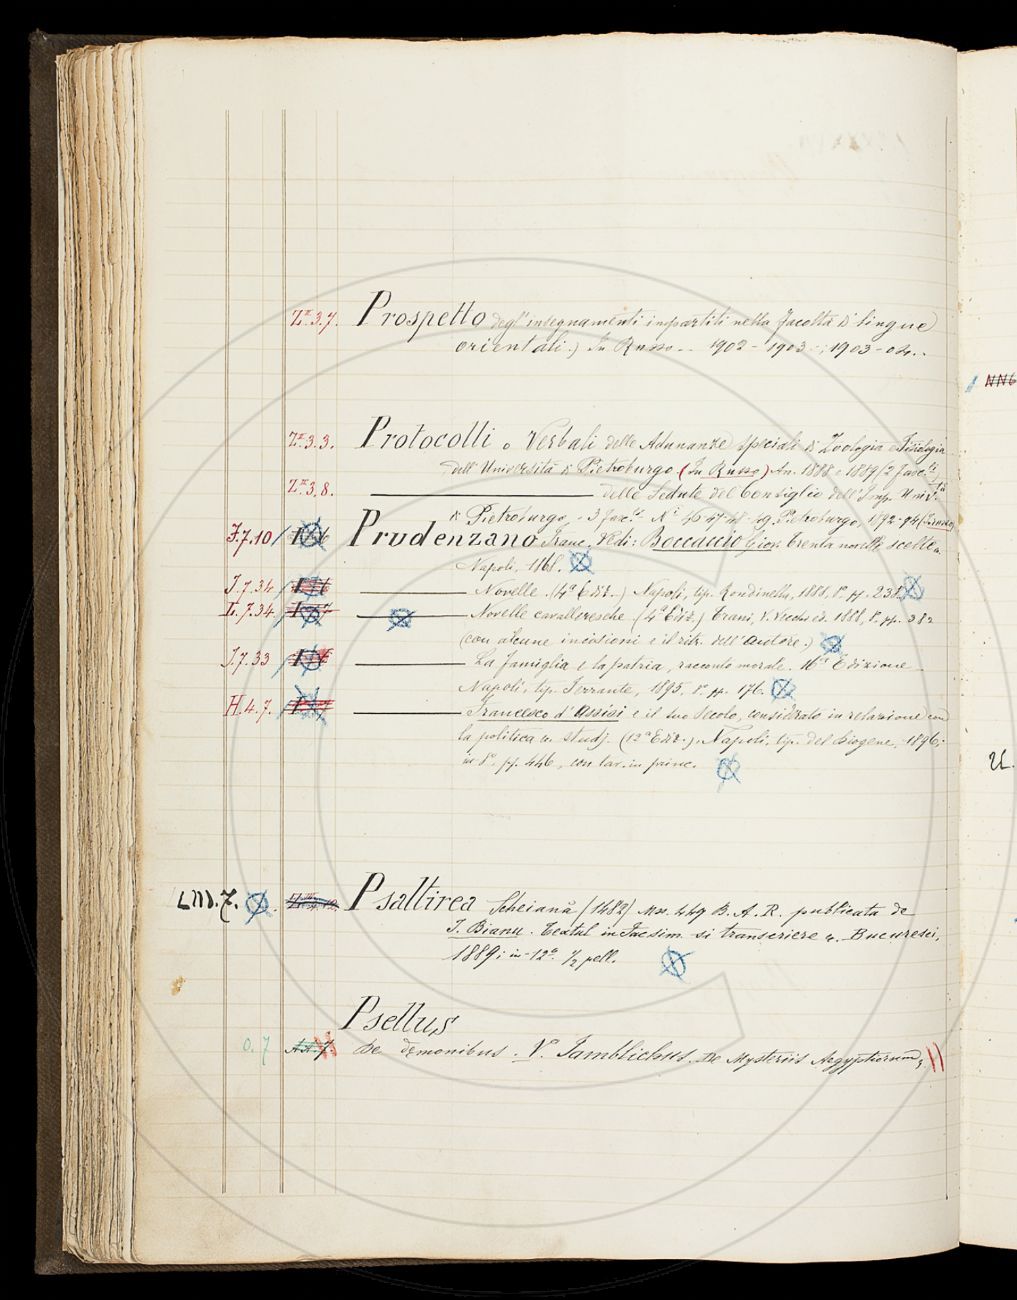 Z.3.7. Prospetto degl'insegnamenti impartiti nella Facoltà di lingue
orientali.) In Russo -- 1902-1903-; 1903-04..
Z.3.3. Protocolli o Verbali delle Adunanze speciali di Zoologia e Fisiologia
dell'Università di Pietroburgo (In Russo) An. 1888-1889 (2 Fasc.li
Z.3.8. delle Sedute del Consiglio dell'Imp. Univ.tà
di Pietroburgo. - 3 Fasc.li N.i 46-47-48-49. Pietroburgo, 1892-94 (In russo)
F.7.10 Prudenzano Franc. Vedi: Boccaccio Giov. Trenta novelle scelte
Napoli, 1868.
J.7.34 Novelle (4a Ediz.) Napoli, tip. Rondinella, 1881, 8° pp. 238
L.7.34. Novelle cavalleresche (4a Ediz.) Trani, V. Vecchi ed. 1888, 8° pp. 382
(con alcune incisioni e il ritr. dell'autore.)
J.7.33 La famiglia e la patria, racconto morale. 16a Edizione
Napoli, tip. Ferrante, 1895, 8° pp. 176.
H.4.7. Francesco d'Assisi e il suo Secolo, considerato in relazione con
la politica (12a Ediz.), Napoli, tip. del Diogene, 1896;
in 8°, pp. 446, con tav. in princ.
LM.7. Psaltirea Scheiană (1482) Mss. 449 B. A. R. publicata de
I. Bianu. Textul in facsim. si transcriere Bucuresci,
1889; in-12° 1/2 pell.
Psellus
O.7 AA.7 De demonibus. V. Iamblichus. De Mysteriis Aegyptiorum
NN6